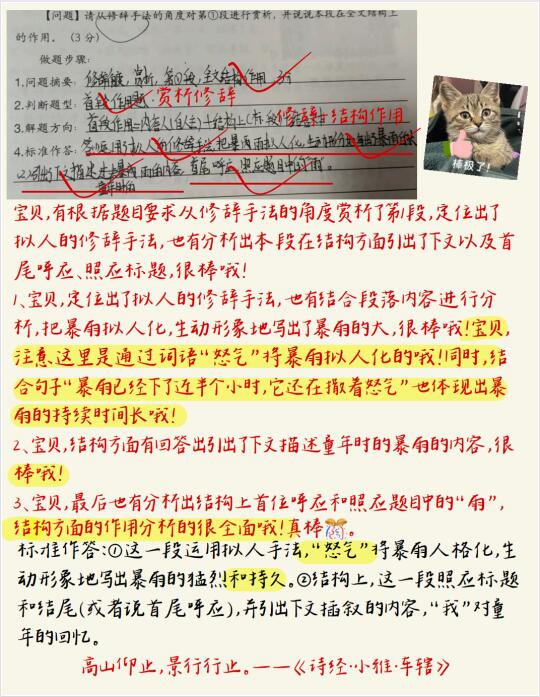 【问题】请从修辞手法的角度对第①段进行赏析，并说说本段在全文结构上
的作用。（3分）
做题步骤：
1.问题摘要：修辞手法，赏析，第①段，全文结构作用，3分
2.判断题型：首段作用题·赏析修辞
3.解题方向：
4.标准作答：
棒极了！
宝贝,有根据题目要求从修辞手法的角度赏析了第1段,定位出了
拟人的修辞手法,也有分析出本段在结构方面引出了下文以及首
尾呼应、照应标题,很棒哦!
1、宝贝,定位出了拟人的修辞手法,也有结合段落内容进行分
析,把暴雨拟人化,生动形象地写出了暴雨的大,很棒哦!宝贝,
注意这里是通过词语“怒气”将暴雨拟人化的哦!同时,结
合句子“暴雨已经下了近半个小时,它还在撒着怒气”也体现出暴
雨的持续时间长哦!
2、宝贝,结构方面有回答出引出了下文描述童年时的暴雨的内容,很
棒哦!
3、宝贝,最后也有分析出结构上首位呼应和照应题目中的“雨”,
结构方面的作用分析的很全面哦!真棒。
标准作答:①这一段运用拟人手法,“怒气”将暴雨人格化,生
动形象地写出暴雨的猛烈和持久。②结构上,这一段照应标题
和结尾(或者说首尾呼应),并引出下文插叙的内容,“我”对童
年的回忆。
高山仰止,景行行止。——《诗经·小雅·车辖》